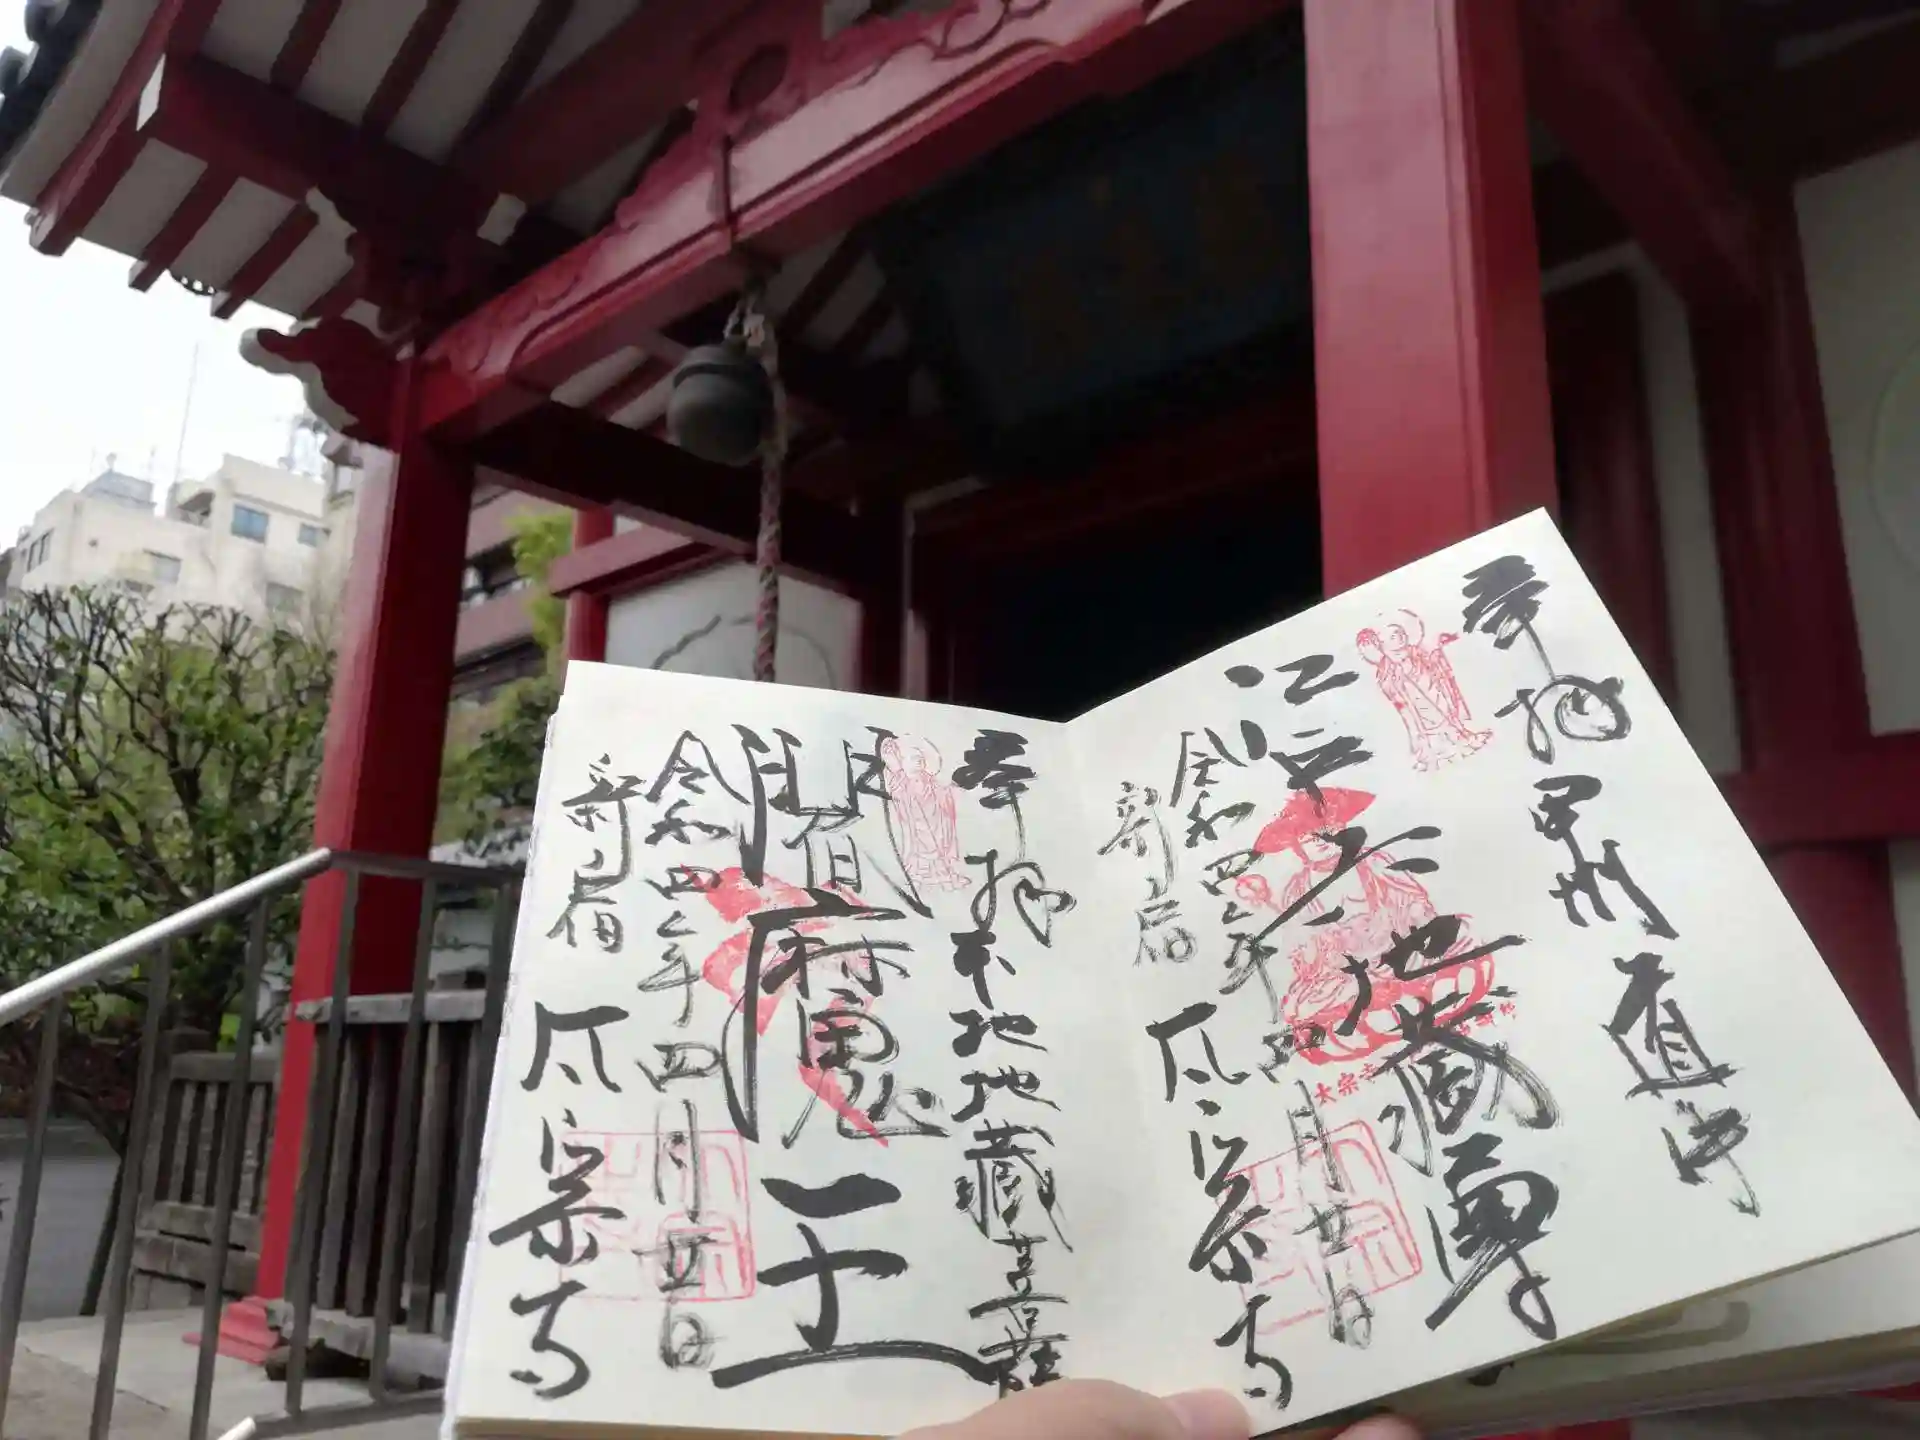 奉拝
甲州道中
江戸六地蔵尊
太宗寺
令和四年四月廿五日
新宿
太宗寺
奉拝
本地地蔵菩薩
閻魔王
令和四年四月廿五日
新宿
太宗寺